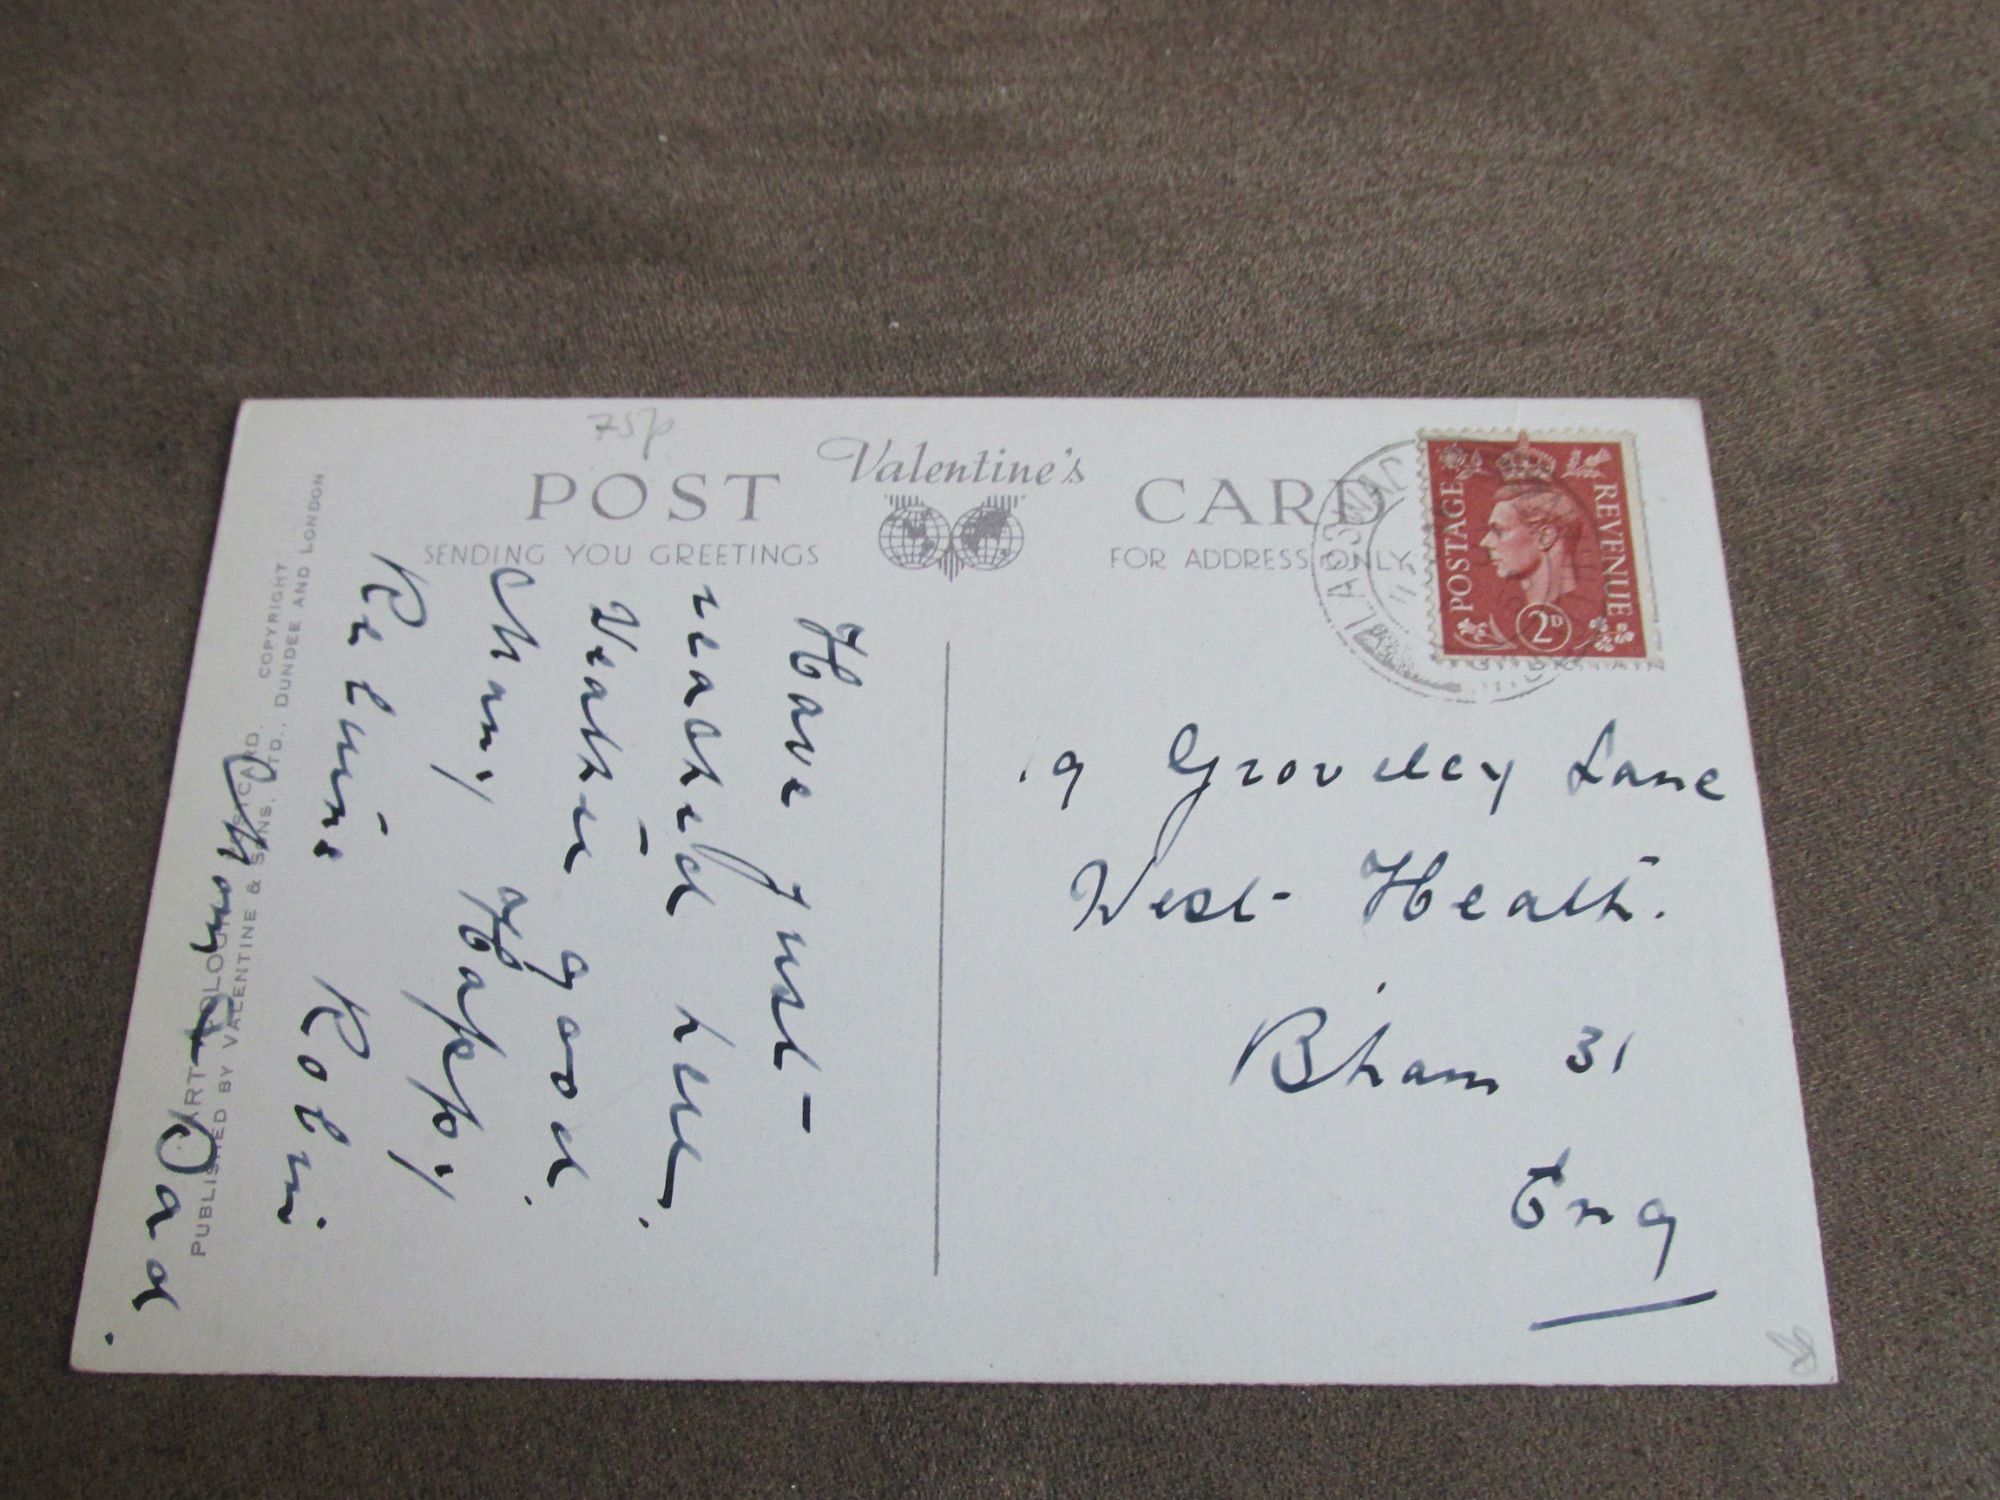 75p
Valentine's
POST CARD
SENDING YOU GREETINGS
FOR ADDRESS ONLY
POSTAGE
REVENUE
2D
Have just
reached here.
Weather good.
Many Happy
Returns Robin
Mom
Dad.
COPYRIGHT
PUBLISHED BY VALENTINE & SONS, LTD., DUNDEE AND LONDON.
9 Groveley Lane
West Heath.
B'ham 31
Eng